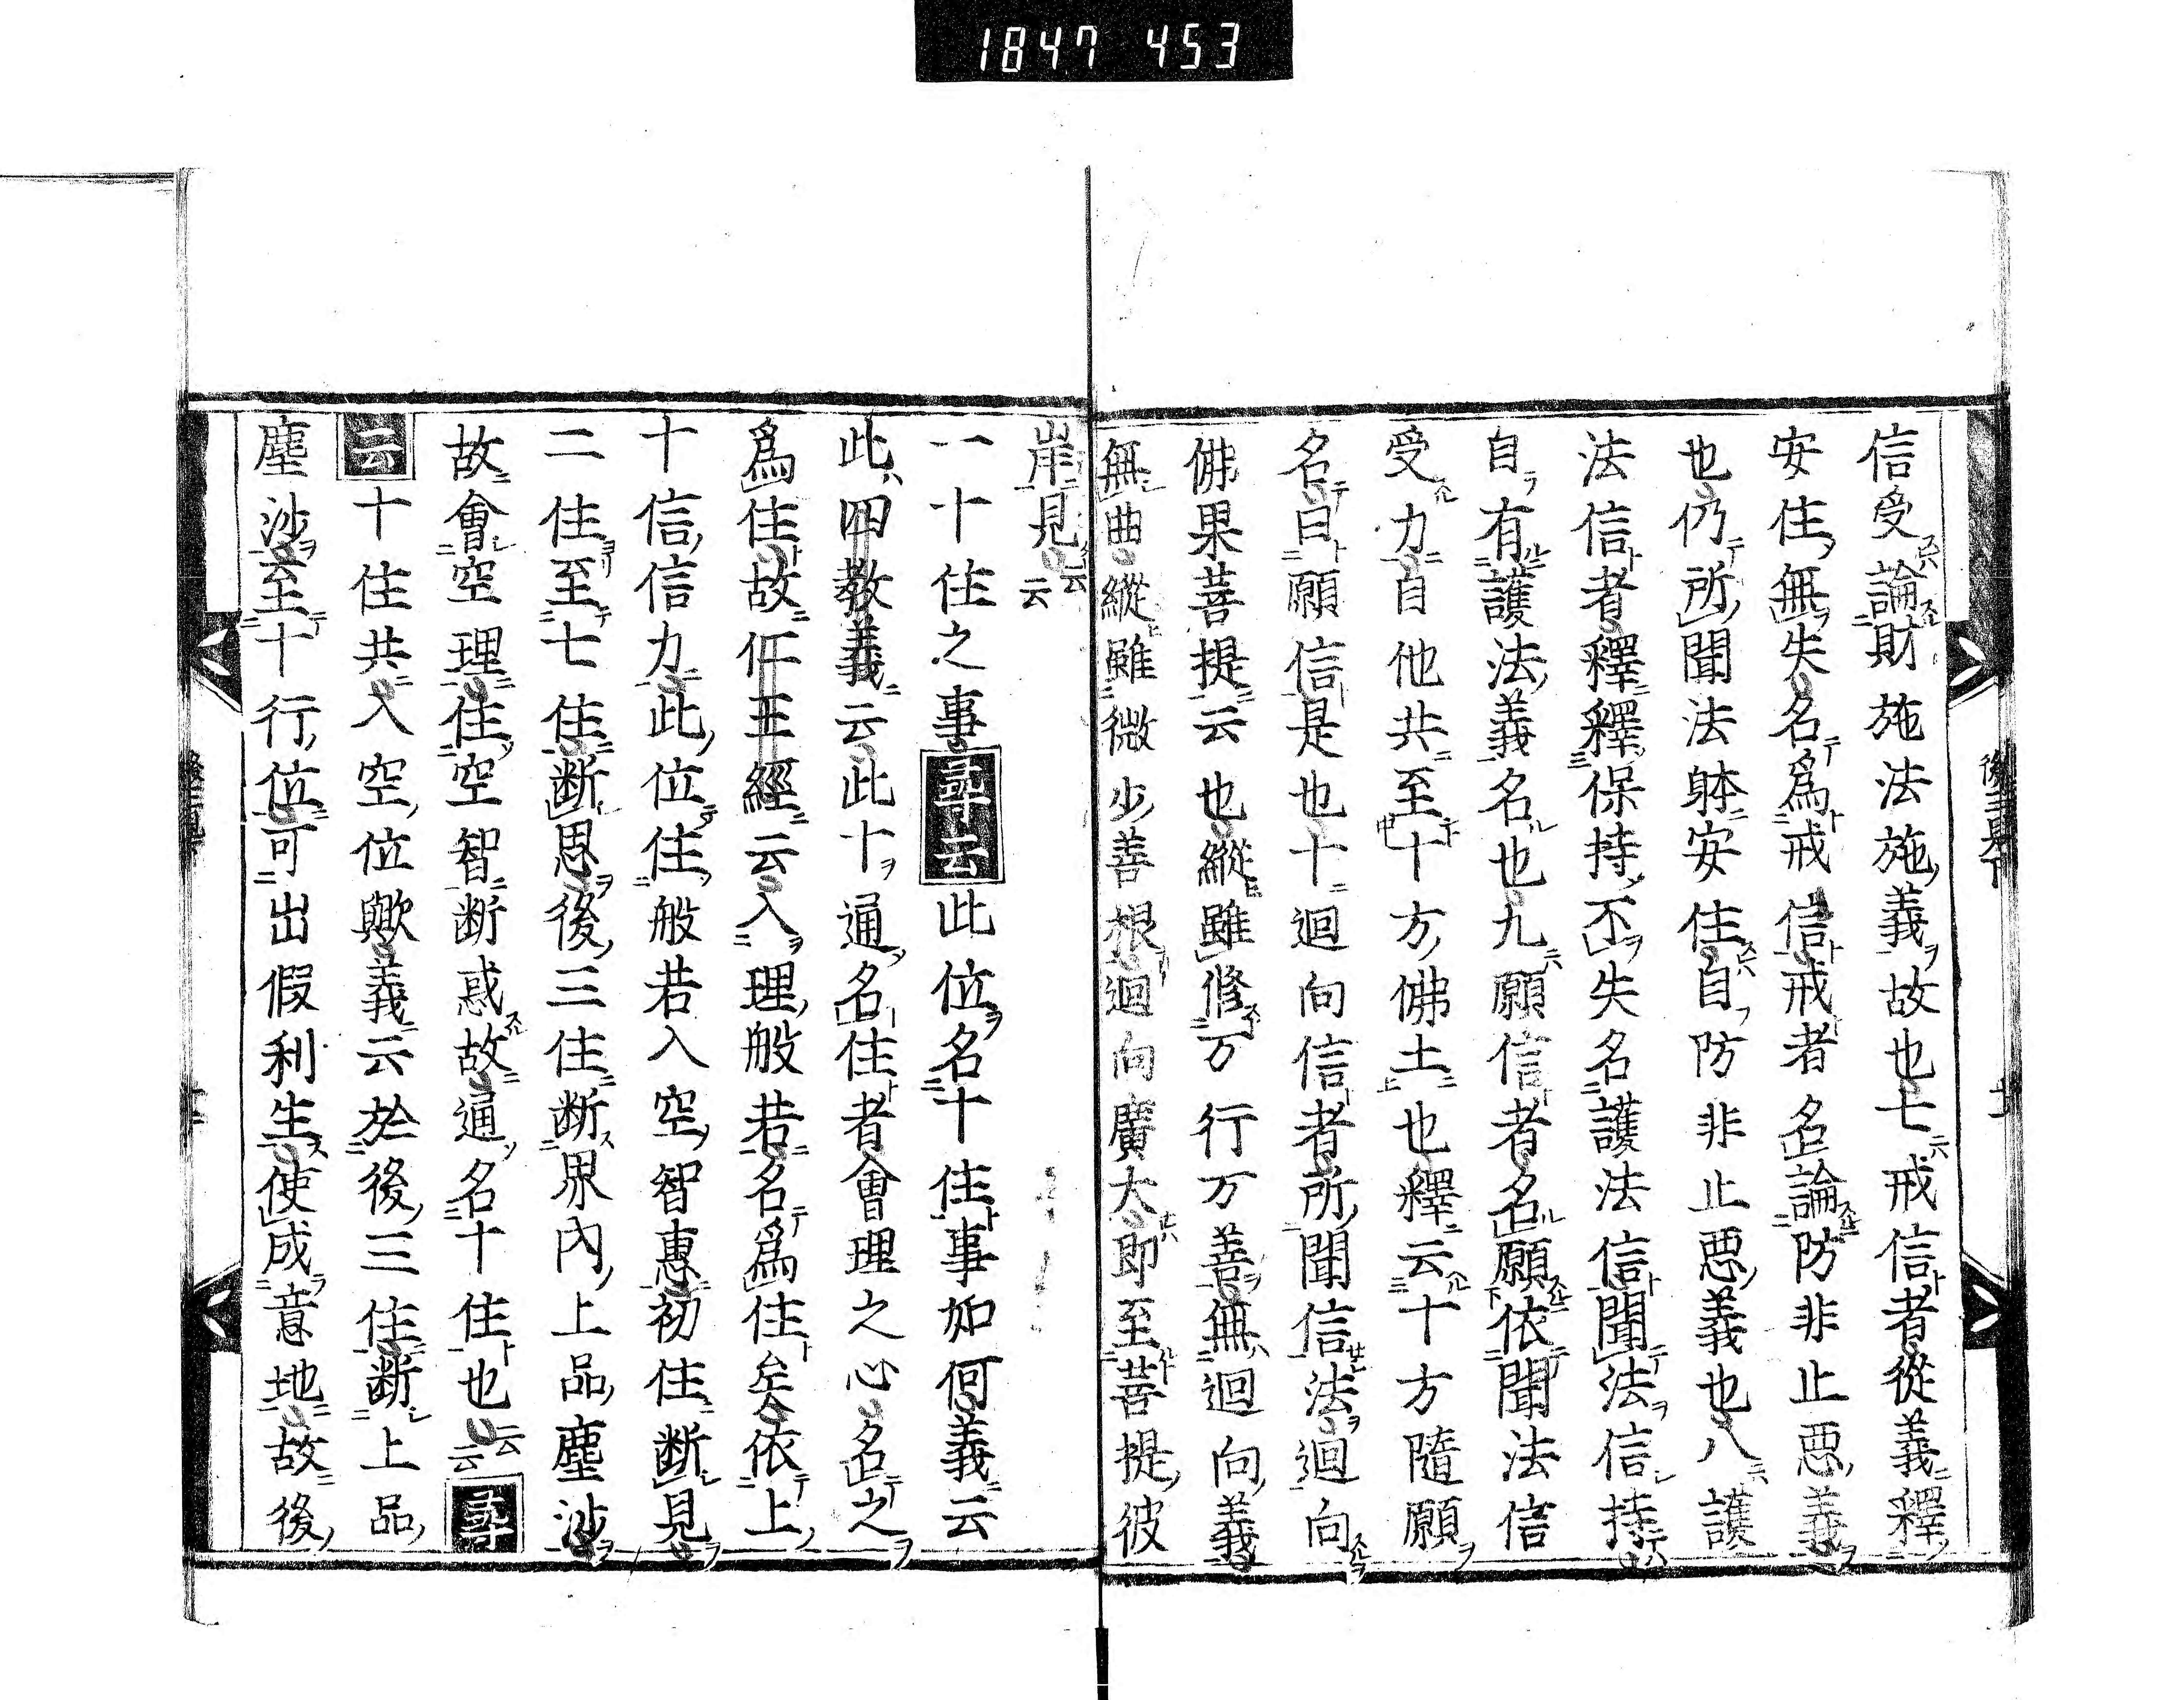 1847 453
信受論財施法施義故也七戒信者從義釋
安住無失名爲戒信戒者名論防非止惡義
也仍所聞法躰安住自防非止惡義也八護
法信者釋釋保持不失名護法信聞法信持
自有護法義名也九願信者名願依聞法信
受力自他共至十方佛土也釋云十方隨願
名曰願信是也十迴向信者所聞信法迴向
佛果菩提云也縱雖修万行万善無迴向義
無曲縱雖微少善根迴向廣大即至菩提彼
岸見云云
一十住之事尋云此位名十住事如何義云
此四教義云此十通名住者會理之心名之
爲住故仁王經云入理般若名爲住矣依上
十信信力此位住般若入空智惠初住断見
二住至七住断思後三住断界內上品塵沙
故會空理住空智断惑故通名十住也云云尋
云十住共入空位歟義云於後三住断上品
塵沙至十行位可出假利生使成意地故後